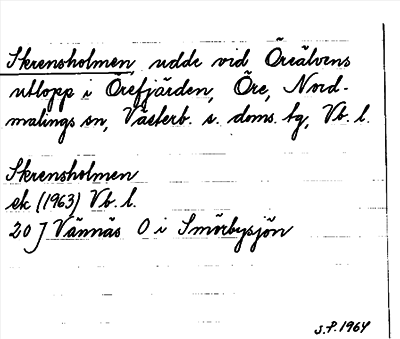 Skrensholmen, udde vid Öreälvens
utlopp i Örefjärden, Öre, Nord-
malings sn, Västerb. s. doms. tg, Vb. l.
Skrensholmen
ek (1963) Vb. l.
20 J Vännäs O i Smörbysjön
S.P. 1964